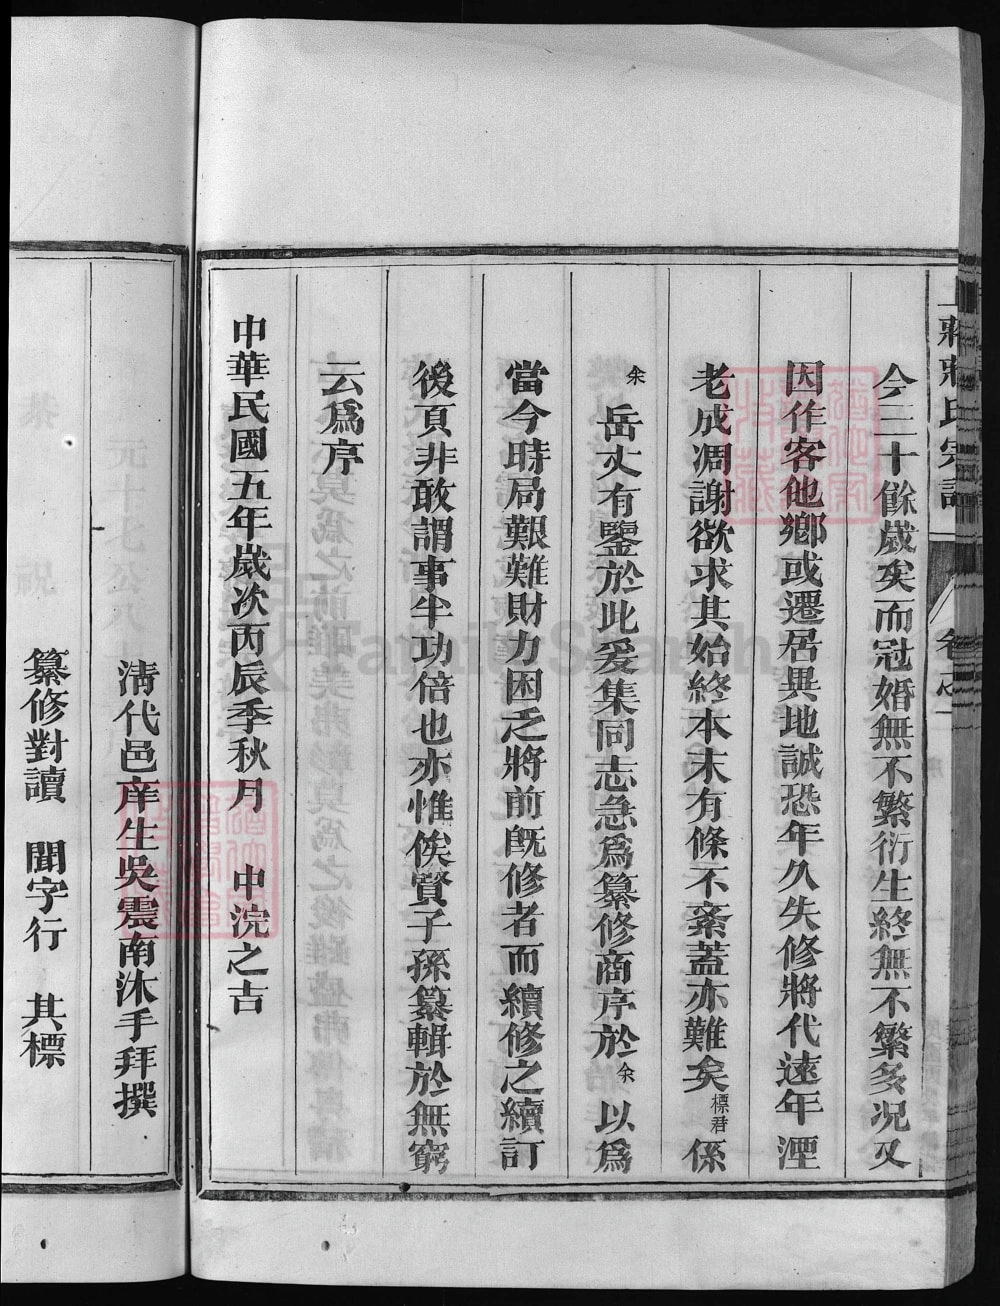 今三十餘歲矣而冠婚無不繁衍生終無不繁多况又
因作客他鄉或遷居異地誠恐年久失修將代遠年湮
老成凋謝欲求其始終本末有條不紊蓋亦難矣標君係
余岳丈有鑒於此爰集同志急爲纂修商序於余以爲
當今時局艱難財力困乏將前既修者而續修之續訂
後頁非敢謂事半功倍也亦惟俟賢子孫纂輯於無窮
云爲序
中華民國五年歲次丙辰季秋月 中浣之吉
清代邑庠生吳震南沐手拜撰
纂修對讀 聞字行 其標
蔣氏宗譜
卷之一
Shanghai